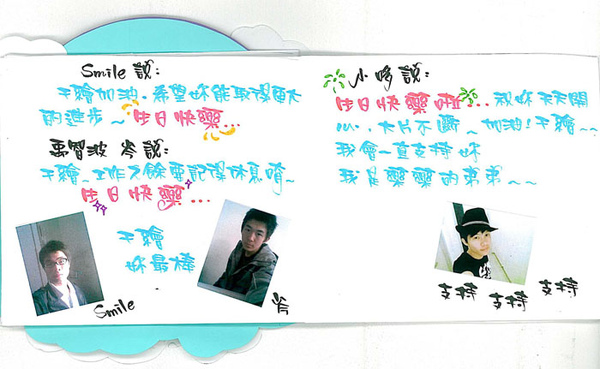 Smile 說:
千繪加油.希望妳能取得更大
的進步~生日快樂...
宇智波 岑說:
千繪~工作之餘要記得休息唷~
生日快樂...
千繪
妳最棒
Smile
岑
小哆說:
生日快樂啦...祝妳天天開
心.大片不斷~加油!千繪~~
我會一直支持妳
我是樂樂的弟弟~~
支持 支持 支持